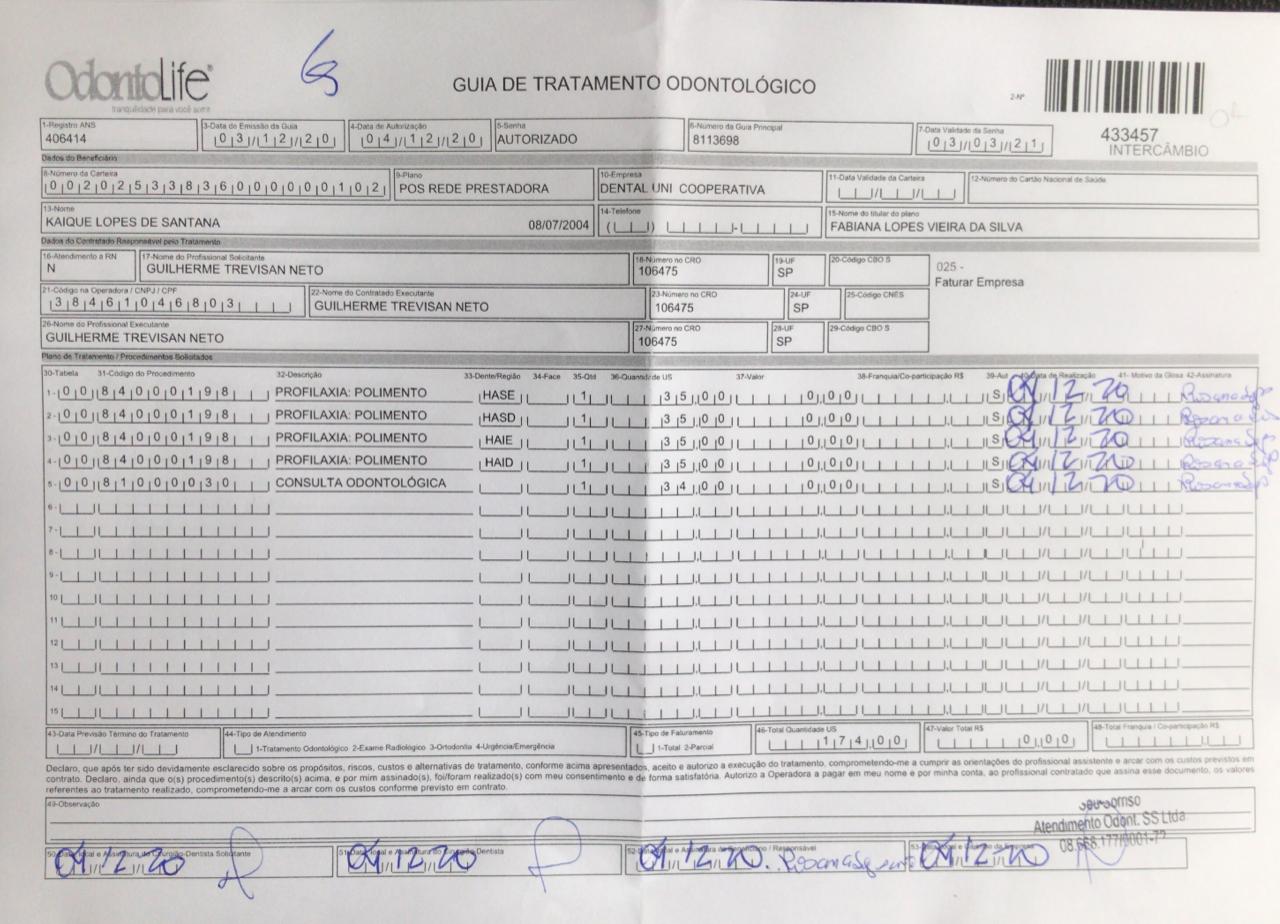 OdontoLife®
tranquilidade para você sorrir
GUIA DE TRATAMENTO ODONTOLÓGICO
2-Nº
433457
INTERCÂMBIO
1-Registro ANS
406414
3-Data de Emissão da Guia
03/12/20
4-Data de Autorização
04/12/20
5-Senha
AUTORIZADO
6-Número da Guia Principal
8113698
7-Data Validade da Senha
03/03/21
Dados do Beneficiário
8-Número da Carteira
00202533836000000102
9-Plano
POS REDE PRESTADORA
10-Empresa
DENTAL UNI COOPERATIVA
11-Data Validade da Carteira
12-Número do Cartão Nacional de Saúde
13-Nome
KAIQUE LOPES DE SANTANA 08/07/2004
14-Telefone
15-Nome do titular do plano
FABIANA LOPES VIEIRA DA SILVA
Dados do Contratado Responsável pelo Tratamento
16-Atendimento a RN
N
17-Nome do Profissional Solicitante
GUILHERME TREVISAN NETO
18-Número no CRO
106475
19-UF
SP
20-Código CBO S
025 -
Faturar Empresa
21-Código na Operadora / CNPJ / CPF
38461046803
22-Nome do Contratado Executante
GUILHERME TREVISAN NETO
23-Número no CRO
106475
24-UF
SP
25-Código CNES
26-Nome do Profissional Executante
GUILHERME TREVISAN NETO
27-Número no CRO
106475
28-UF
SP
29-Código CBO S
Plano de Tratamento / Procedimentos Solicitados
30-Tabela 31-Código do Procedimento 32-Descrição 33-Dente/Região 34-Face 35-Qtd 36-Quantidade US 37-Valor 38-Franquia/Co-participação R$ 39-Aut 40-Data de Realização 41- Motivo da Glosa 42-Assinatura
1- 00 84000198 PROFILAXIA: POLIMENTO HASE 1 35,00 0,00 S 04/12/20
2- 00 84000198 PROFILAXIA: POLIMENTO HASD 1 35,00 0,00 S 04/12/20
3- 00 84000198 PROFILAXIA: POLIMENTO HAIE 1 35,00 0,00 S 04/12/20
4- 00 84000198 PROFILAXIA: POLIMENTO HAID 1 35,00 0,00 S 04/12/20
5- 00 81000030 CONSULTA ODONTOLÓGICA 1 34,00 0,00 S 04/12/20
6-
7-
8-
9-
10
11
12
13
14
15
43-Data Previsão Término do Tratamento
44-Tipo de Atendimento
1-Tratamento Odontológico 2-Exame Radiológico 3-Ortodontia 4-Urgência/Emergência
45-Tipo de Faturamento
1-Total 2-Parcial
46-Total Quantidade US
174,00
47-Valor Total R$
0,00
48-Total Franquia / Co-participação R$
Declaro, que após ter sido devidamente esclarecido sobre os propósitos, riscos, custos e alternativas de tratamento, conforme acima apresentados, aceito e autorizo a execução do tratamento, comprometendo-me a cumprir as orientações do profissional assistente e arcar com os custos previstos em
contrato. Declaro, ainda que o(s) procedimento(s) descrito(s) acima, e por mim assinado(s), foi/foram realizado(s) com meu consentimento e de forma satisfatória. Autorizo a Operadora a pagar em meu nome e por minha conta, ao profissional contratado que assina esse documento, os valores
referentes ao tratamento realizado, comprometendo-me a arcar com os custos conforme previsto em contrato.
49-Observação
Atendimento Odont. SS Ltda
08.668.177/0001-72
50-Data, local e Assinatura do Cirurgião-Dentista Solicitante
04/12/20
04/12/20
04/12/20
04/12/20